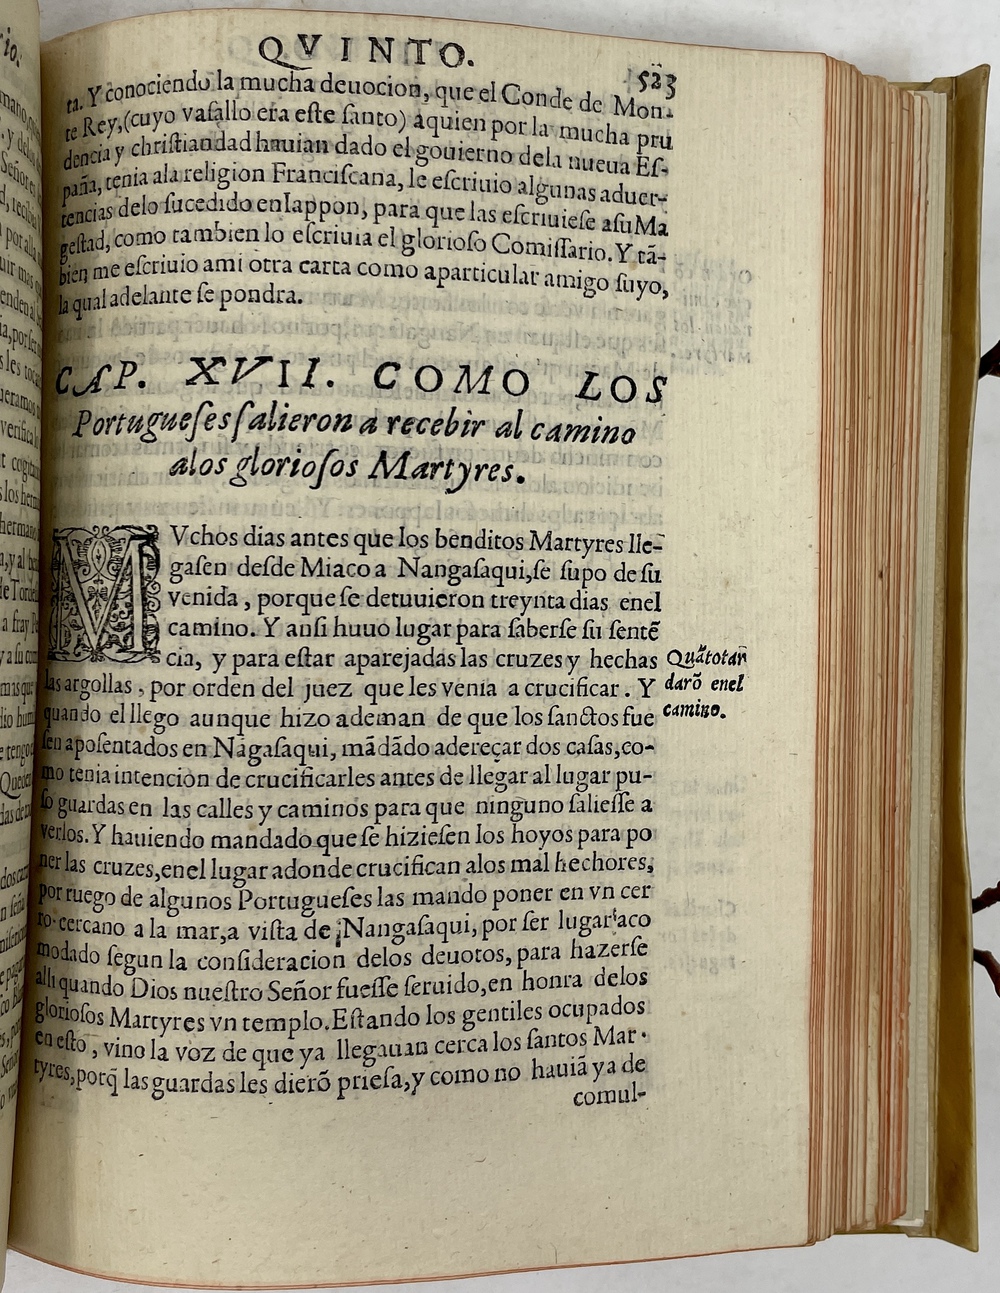 QVINTO.
523
ta. Y conociendo la mucha deuocion, que el Conde de Mon-
te Rey, (cuyo vaſallo era eſte ſanto) aquien por la mucha pru
dencia y chriſtiandad hauian dado el gouierno dela nueua Eſ-
paña, tenia ala religion Franciſcana, le eſcriuio algunas aduer-
tencias delo ſucedido en Iappon, para que las eſcriuieſe aſu Ma
geſtad, como tambien lo eſcriuia el glorioſo Comiſſario. Y tã-
bien me eſcriuio ami otra carta como aparticular amigo ſuyo,
la qual adelante ſe pondra.
CAP. XVII. COMO LOS
Portugueſes ſalieron a recebir al camino
alos glorioſos Martyres.
MVchos dias antes que los benditos Martyres lle-
gaſen deſde Miaco a Nangaſaqui, ſe ſupo de ſu
venida, porque ſe detuuieron treynta dias enel
camino. Y anſi huuo lugar para ſaberſe ſu ſentẽ
cia, y para eſtar aparejadas las cruzes y hechas
las argollas, por orden del juez que les venia a crucificar. Y
quando el llego aunque hizo ademan de que los ſanctos fue
ſen apoſentados en Nagaſaqui, mãdãdo adereçar dos caſas, co-
mo tenia intencion de crucificarles antes de llegar al lugar pu-
ſo guardas en las calles y caminos para que ninguno ſalieſſe a
verlos. Y hauiendo mandado que ſe hizieſen los hoyos para po
ner las cruzes, enel lugar adonde crucifican alos mal hechores,
por ruego de algunos Portugueſes las mando poner en vn cer
ro cercano a la mar, a viſta de Nangaſaqui, por ſer lugar aco
modado ſegun la conſideracion delos deuotos, para hazerſe
alli quando Dios nueſtro Señor fueſſe ſeruido, en honra delos
glorioſos Martyres vn templo. Eſtando los gentiles ocupados
en eſto, vino la voz de que ya llegauan cerca los ſantos Mar-
tyres, porq̃ las guardas les dierõ prieſa, y como no hauiã ya de
comul-
Quãto tar
darõ enel
camino.